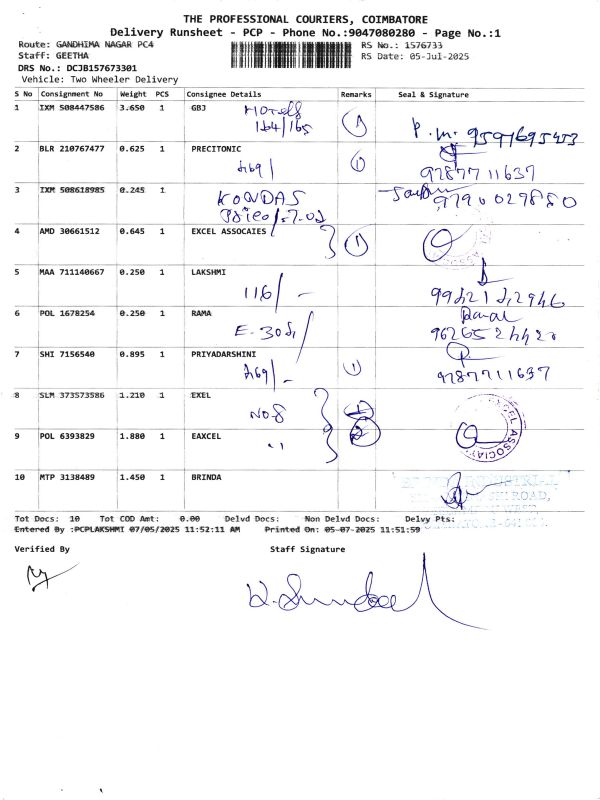 THE PROFESSIONAL COURIERS, COIMBATORE
Delivery Runsheet - PCP - Phone No.:9047080280 - Page No.:1
Route: GANDHIMA NAGAR PC4 RS No.: 1576733
Staff: GEETHA RS Date: 05-Jul-2025
DRS No.: DCJB157673301
Vehicle: Two Wheeler Delivery
S No Consignment No Weight PCS Consignee Details Remarks Seal & Signature
1 IXM 508447586 3.650 1 GBJ Hotels 1
164/165
P.M. 9597695453
2 BLR 210767477 0.625 1 PRECITONIC 1
9787711637
3 IXM 508618985 0.245 1
KONDAS 9790029880
4 AMD 30661512 0.645 1 EXCEL ASSOCAIES 1
5 MAA 711140667 0.250 1 LAKSHMI
116/-
6 POL 1678254 0.250 1 RAMA
7 SHI 7156540 0.895 1 PRIYADARSHINI 1
9787711637
8 SLM 373573586 1.210 1 EXEL
NO-8 1
9 POL 6393829 1.880 1 EAXCEL 2
10 MTP 3138489 1.450 1 BRINDA
ROAD,
Tot Docs: 10 Tot COD Amt: 0.00 Delvd Docs: Non Delvd Docs: Delvy Pts:
Entered By :PCPLAKSHMI 07/05/2025 11:52:11 AM Printed On: 05-07-2025 11:51:59
Verified By Staff Signature